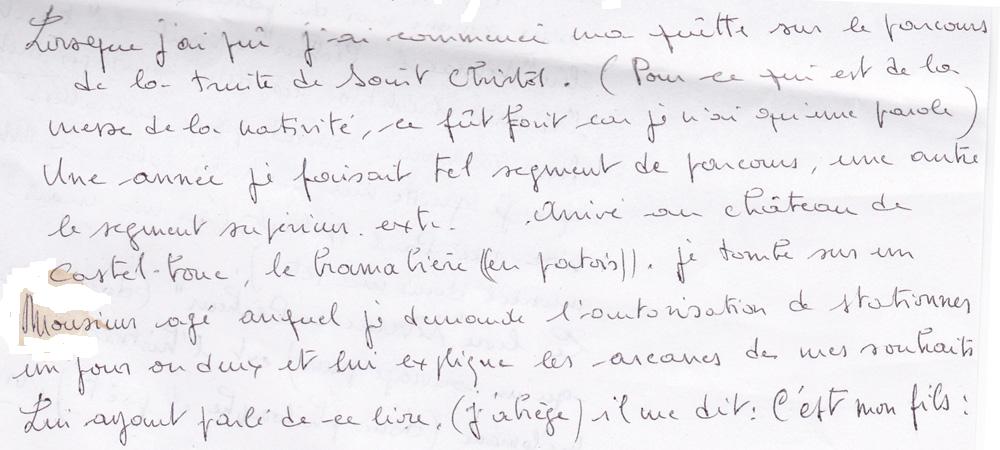 Lorsque j'ai pû j'ai commencé ma quêtte sur le parcours
de la truite de Saint Christol. (Pour ce qui est de la
messe de la nativité, ce fût fait car je n'ai qu'une parole)
Une année je faisait tel segment de parcours, une autre
le segment supérieur. ext. Arrivé au château de
Castel-bouc, le (en patois). je tombe sur un
Monsieur agé auquel je demande l'autorisation de stationner
un jour ou deux et lui explique les arcanes de mes souhaits
Lui ayant parlé de ce livre, (j'abrège) il me dit: C'est mon fils: